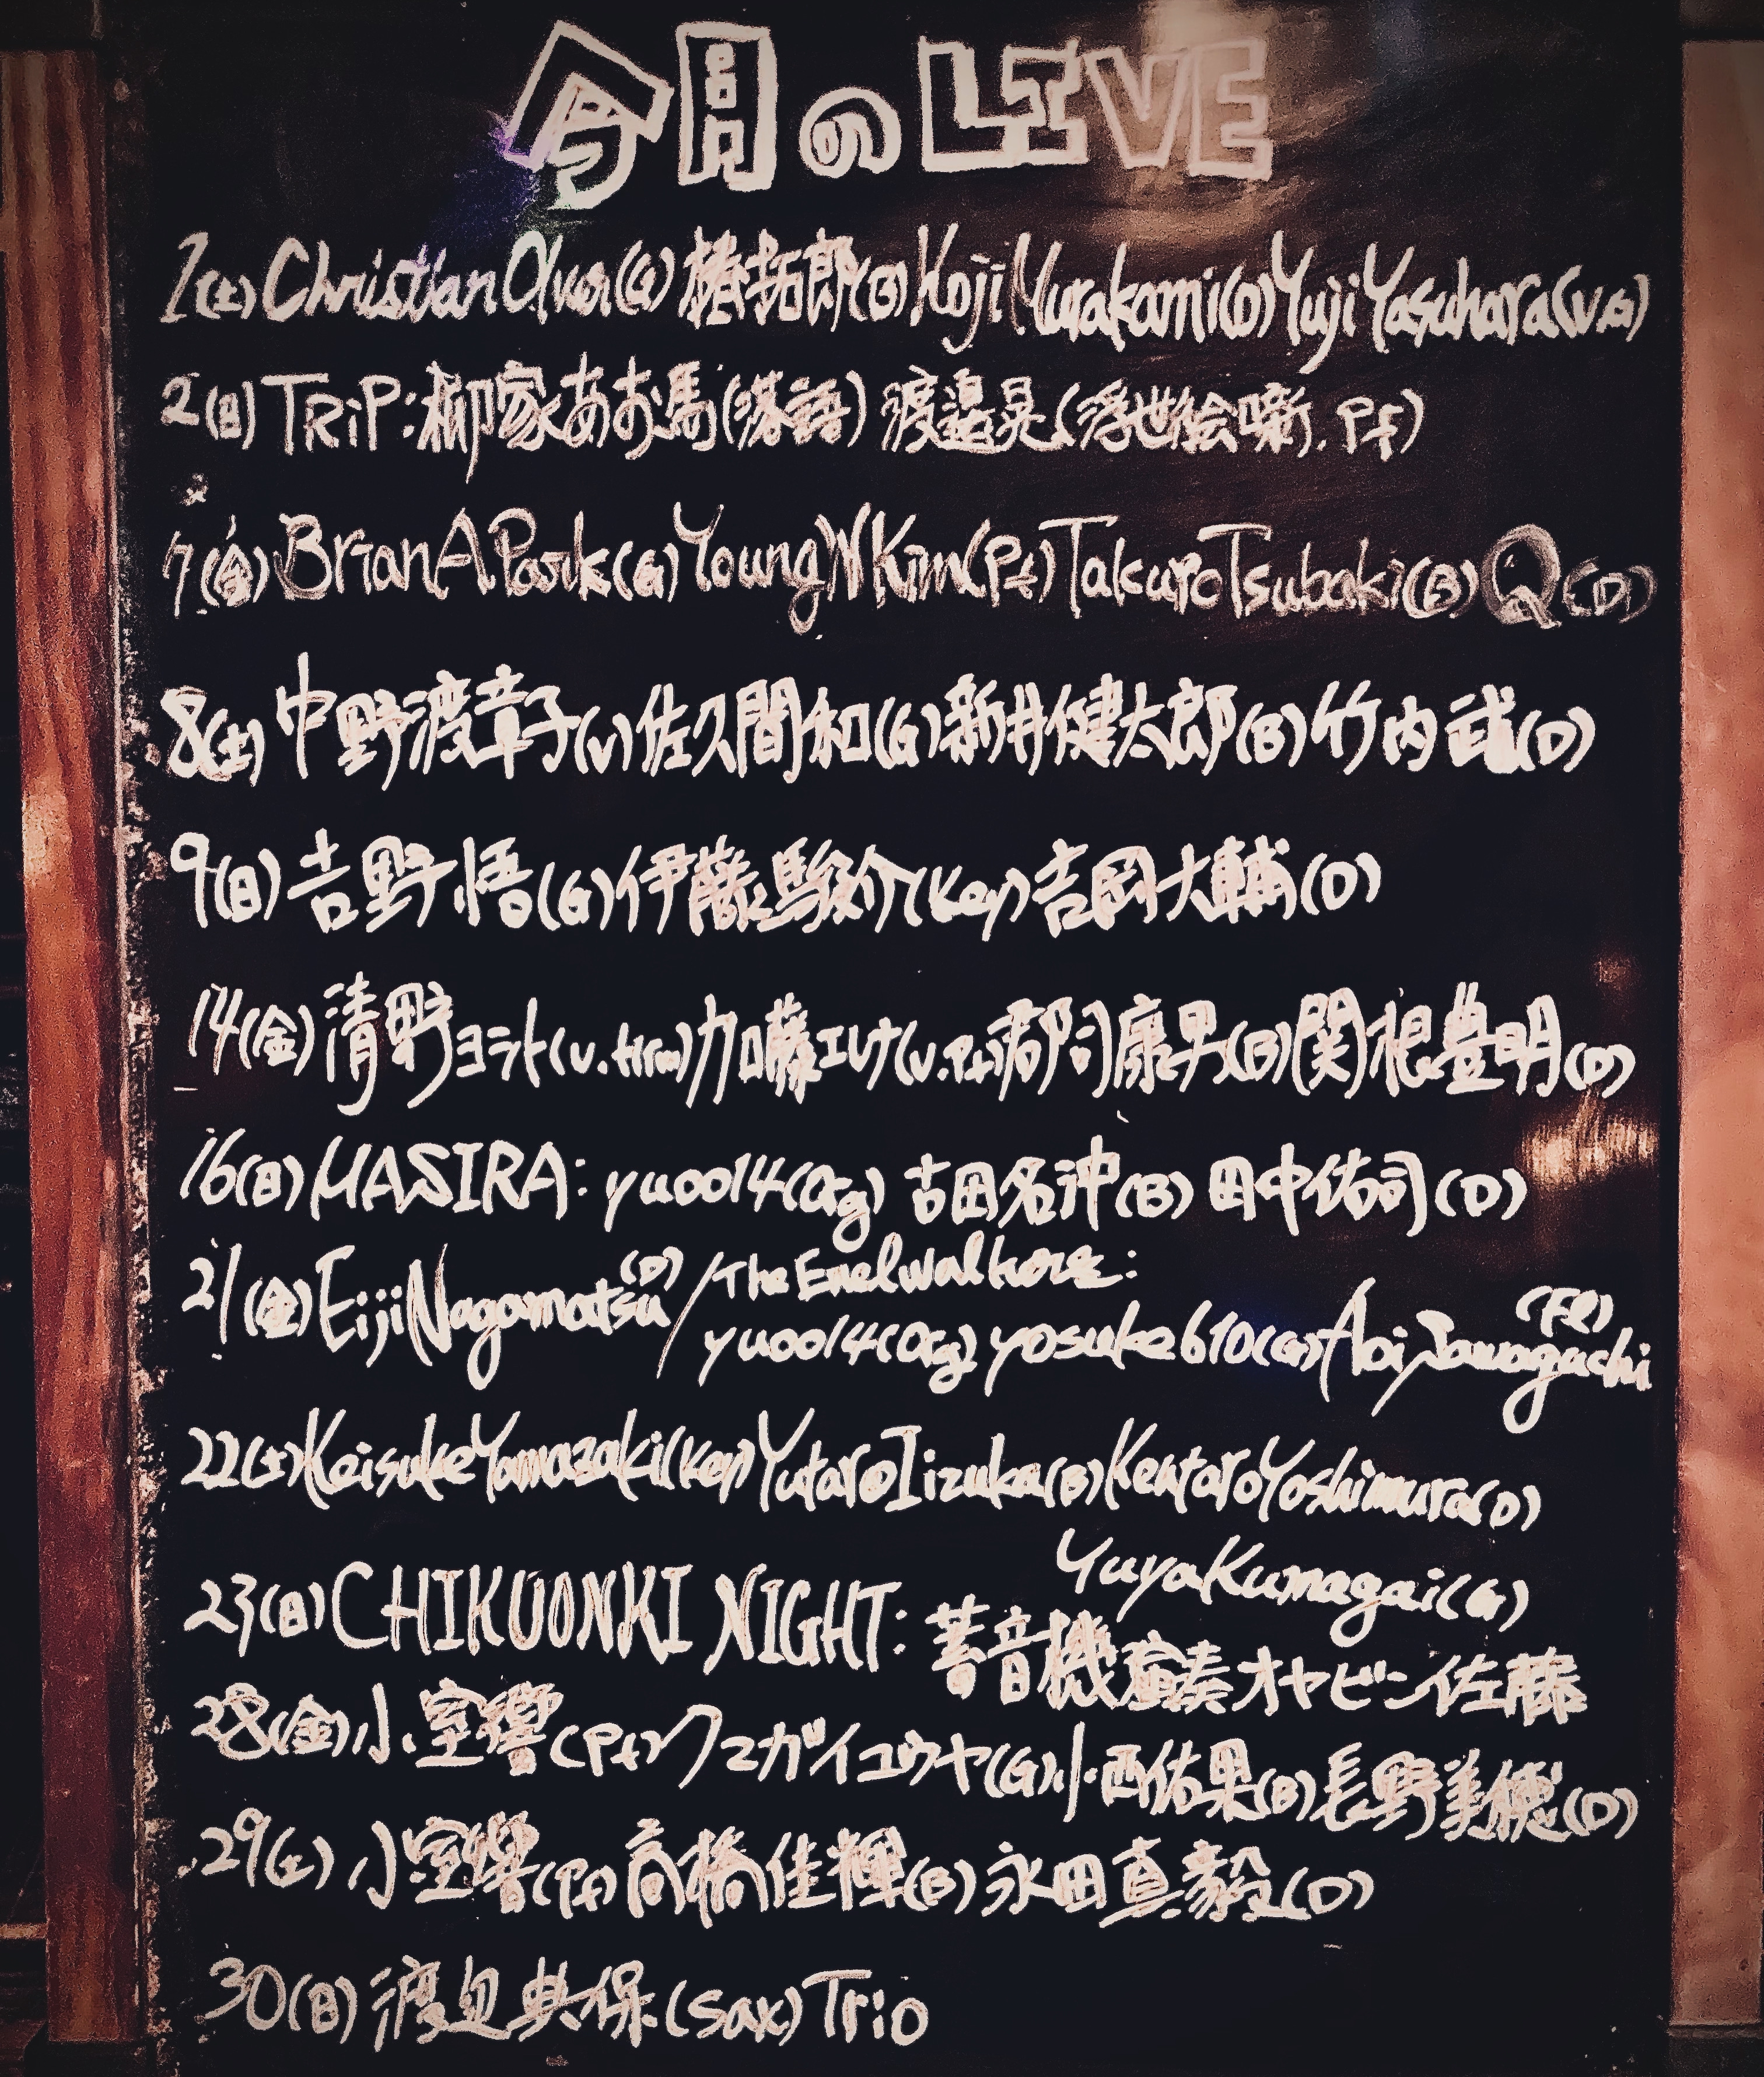 今月のLIVE
1(土)Christian(G)椿拓郎(B)Koji Murakami(D)Yuji Yasuhara(V.G)
2(日)TRiP:柳家あお馬(落語)渡邉晃(浮世絵噺.Pf)
7(金)Brian A Park(G)Young W Kim(Pf)Takuro Tsubaki(B)Q(D)
8(土)中野渡章子(V)佐久間和(G)新井健太郎(B)竹内武(D)
9(日)吉野悟(G)伊藤駿介(Key)吉岡大輔(D)
14(金)清野ヨラト加藤エレナ(V.Pf)郡司康男(B)関根豊明(D)
16(日)MASIRA:yuoo14(Org)古田名沖(B)田中佑司(D)
21(金)Eiji Nagamatsu(D)/The Enelwalkers:
yuoo14(Org)yosuke610(G)Aoi Sawaguchi(Fl)
22(土)Keisuke Yamazaki(Key)Yutaro Iizuka(B)Kentaro Yoshimura(D)
Yuya Kumagai(G)
23(日)CHIKUONKI NIGHT:蓄音機演奏オヤビン佐藤
28(金)小室響(Pf)クマガイユウヤ(G)小西佑果(B)長野美穂(D)
29(土)小室響(Pf)高橋佳輝(B)永田真毅(D)
30(日)渡辺典保(Sax)Trio